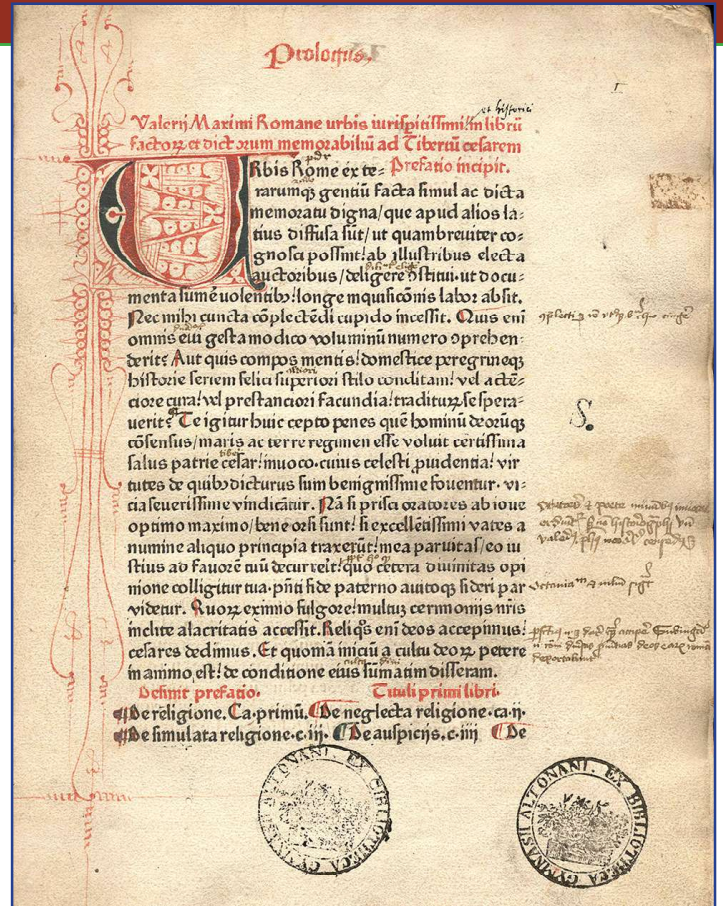 Prologus.
I
et historici
Valerij Maximi Romane urbis iurispitissimi in librū
factoꝝ et dictorum memorabiliū ad Tiberiū cesarem
Prefatio incipit.
URbis Rome exte-
rarumqꝫ gentiū facta simul ac dicta
memoratu digna/que apud alios la-
tius diffusa sūt/ut quam breuiter co-
gnosci possint/ab illustribus electa
auctoribus/deligere ꝯstitui.ut docu-
menta sumē uolentibꝫ!longe īnquisicōnis labor absit.
Nec mihi cuncta cōplectēdi cupido incessit. Quis eni
omnis eui gesta modico voluminū numero ꝯprehen-
derit? Aut quis compos mentis!domestice peregrineqꝫ
historie seriem felici superiori stilo conditam! vel actē-
ciore cura! vel prestanciori facundia!traditurꝝ se spera-
uerit? Te igitur huic cepto penes quē hominū deorūqꝫ
cōsensus/maris ac terre regimen esse voluit certissima
salus patrie cesar!inuoco.cuius celesti ꝓuidentia! vir
tutes de quibꝫ dicturus sum benignissime fouentur. vi-
cia seuerissime vindicātur. Nā si prisci oratores ab ioue
optimo maximo/bene orsi sunt! si excellētissimi vates a
numine aliquo principia traxerūt!mea paruitas/eo iu
stius ad fauorē tuū decurrerit!quo cetera diuinitas opi
nione colligitur tua.pn̄ti fide paterno auitoqꝫ sideri par
videtur. Quoꝝ eximio fulgore!multū cerimonijs nr̄is
inclite alacritatis accessit.Reliqͦs eni deos accepimus!
cesares dedimus. Et quoniā iniciū a cultu deoꝝ petere
in animo est! de conditione eius sūmatim disseram.
Desinit prefatio. Tituli primi libri.
De religione. Ca.primū. De neglecta religione.ca.ij.
De simulata religione.c.iij. De auspicijs.c.iiij De
S.
GYMNASII ALTONANI. EX BIBLIOTHECA
GYMNASII ALTONANI. EX BIBLIOTHECA